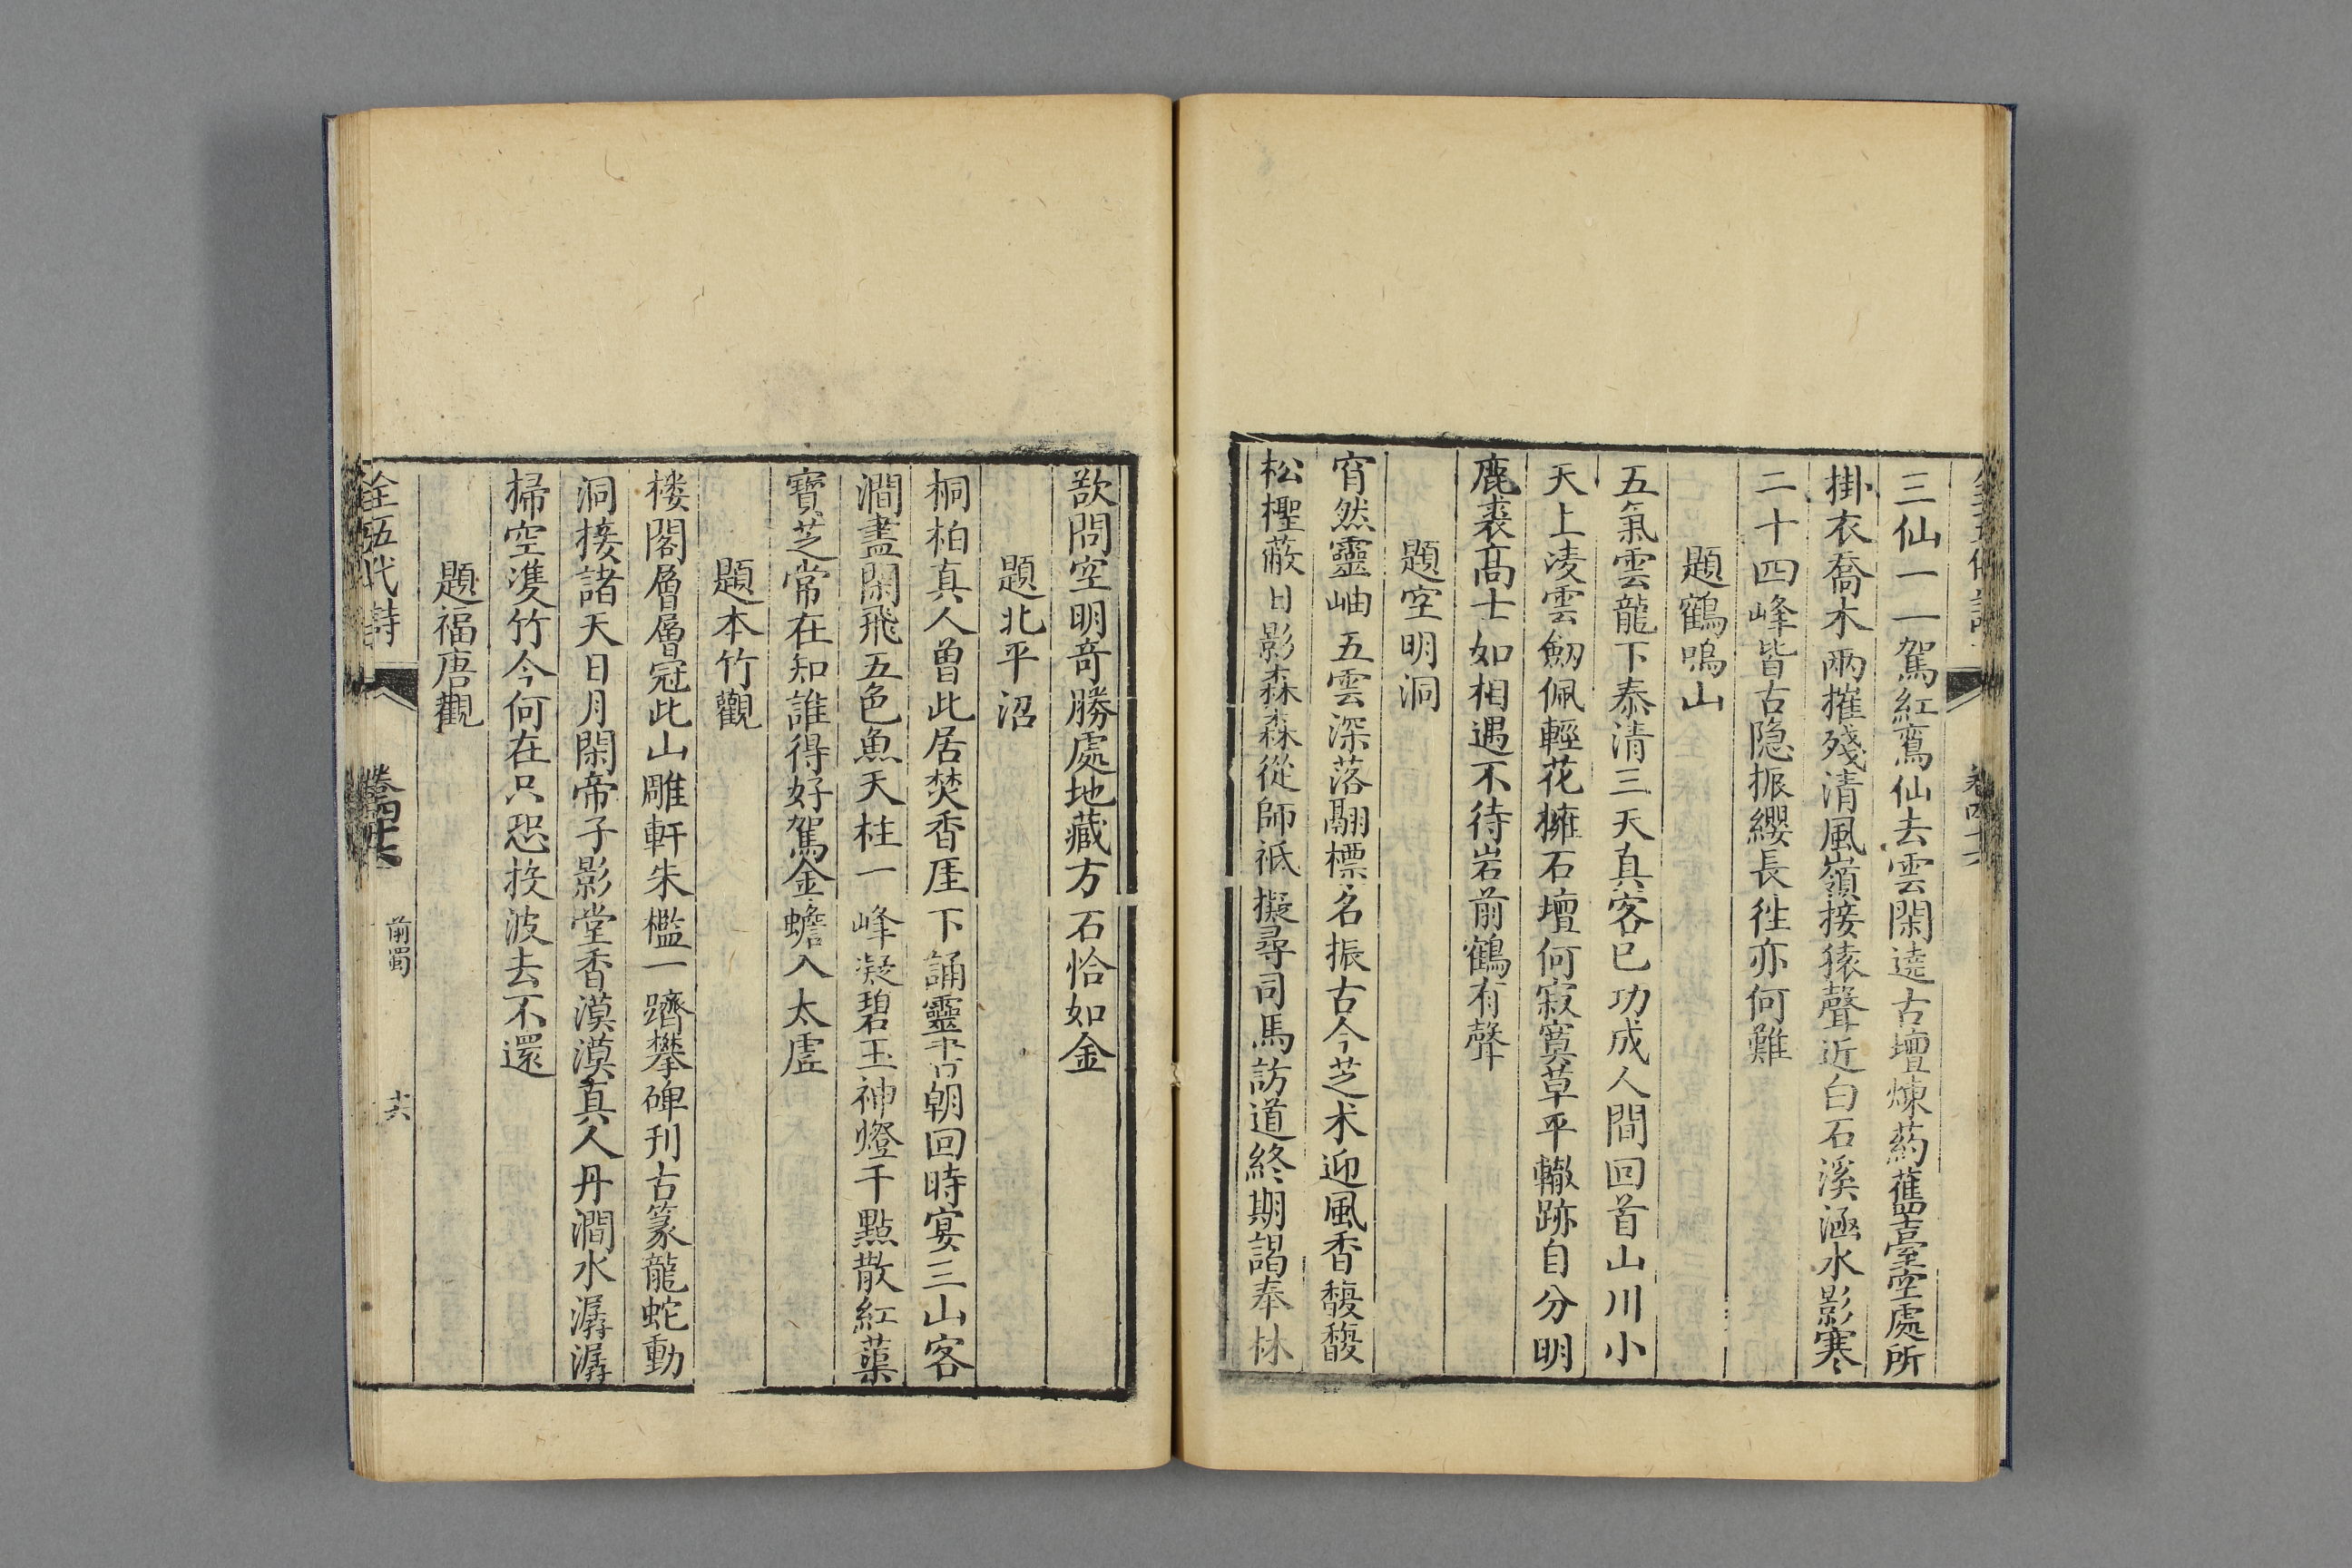 三仙一一駕紅鸞仙去雲閑遶古壇煉葯舊臺空處所
掛衣喬木兩摧殘清風嶺接猿聲近白石溪涵水影寒
二十四峰皆古隐振纓長徃亦何難
題鶴鳴山
五氣雲龍下泰清三天真客已功成人間回首山川小
天上凌雲劒佩輕花擁石壇何寂寞草平轍跡自分明
鹿裘髙士如相遇不待岩前鶴有聲
題空明洞
窅然靈岫五雲深落翮標名振古今芝术迎風香馥馥
松檉蔽日影森森從師祗擬尋司馬訪道終期謁奉林
欲問空明竒勝處地藏方石恰如金
題北平沼
桐柏真人曽此居焚香厓下誦靈書朝回時宴三山客
澗盡閑飛五色魚天柱一峰凝碧玉神燈千點散紅蕖
寳芝常在知誰得好駕金蟾入太虛
題本竹觀
楼閣層層冠此山雕軒朱檻一躋攀碑刊古篆龍蛇動
洞接諸天日月閑帝子影堂香漠漠真人丹澗水潺潺
掃空雙竹今何在只恐投波去不還
題福唐觀
全五代詩
卷四十六
前蜀
十六